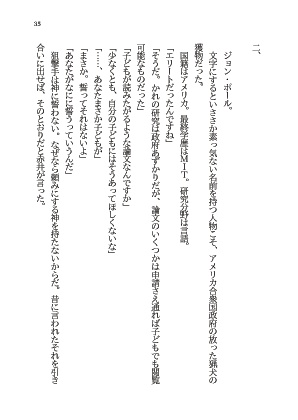 35
二、
ジョン・ポール。
文字にするといささか素っ気ない名前を持つ人物こそ、アメリカ合衆国政府の放った猟犬の
獲物だった。
国籍はアメリカ。最終学歴はMIT。研究分野は言語。
「エリートだったんですね」
「そうだ。かれの研究は政府あずかりだが、論文のいくつかは申請さえ通れば子どもでも閲覧
可能なものだった」
「子どもが読みたがるような論文なんですか」
「少なくとも、自分の子どもにはそうあってほしくないな」
「……、あなたまさか子どもが」
「まさか。誓ってそれはないよ」
「あなたがなにに誓うっていうんだ」
狙撃手は神に誓わない。なぜなら頼みにする神を持たないからだ。昔に言われたそれを引き
合いに出せば、そのとおりだと赤井が言った。